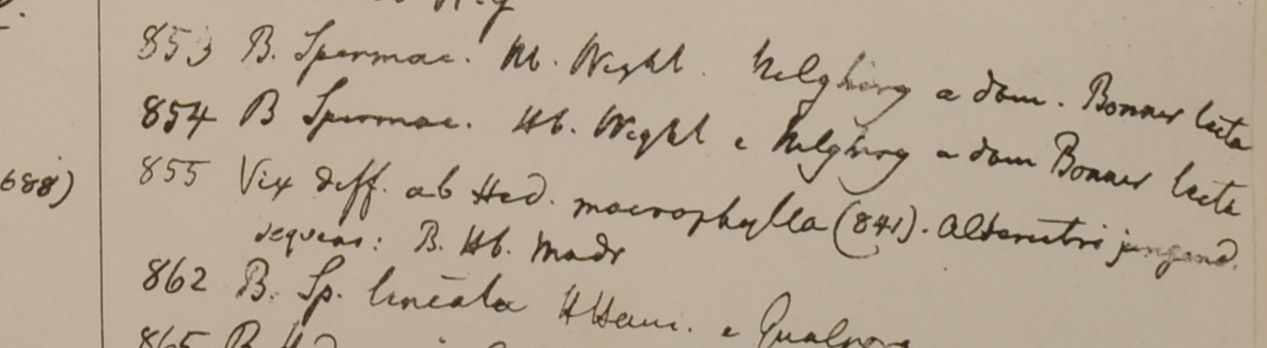 853 B. Spermac. Hb. Wight. Nelghirry a dom. Bonner lecta
854 B Spermac. Hb. Wight e Nelghirry a dom Bonner lecta
688) 855 Vix diff. ab Hed. macrophylla (841). Alterutri jungend.
sequens: B. Hb. Madr
862 B. Sp. lineata HHam. e Gualpara
865 B